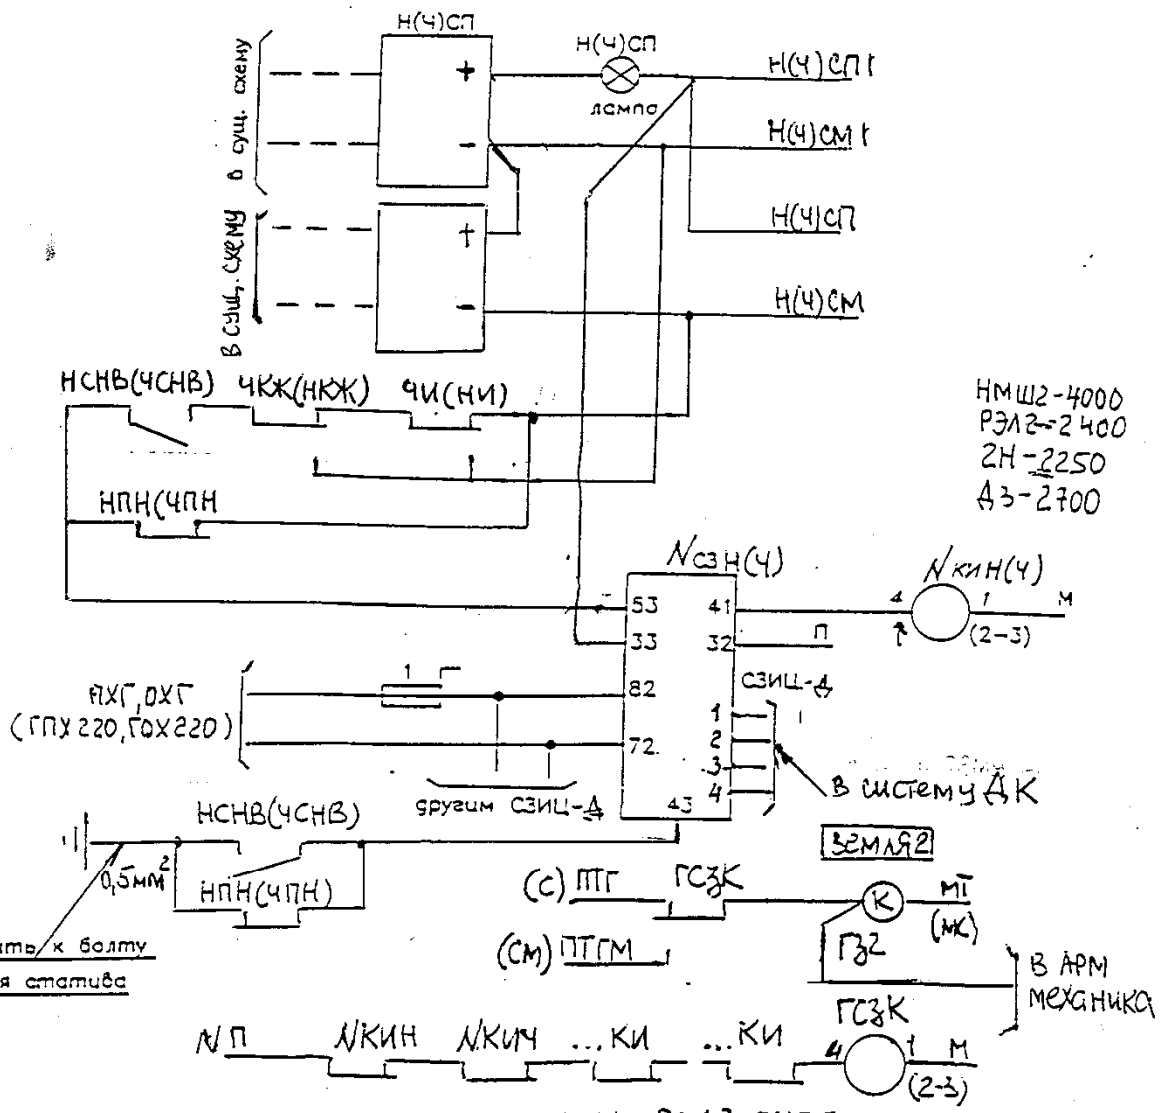 Н(Ч)СП
Н(Ч)СП
лампа
Н(Ч)СП1
Н(Ч)СМ1
Н(Ч)СП
Н(Ч)СМ
+
-
+
-
В сущ. схему
В сущ. схему
НСНВ(ЧСНВ)
ЧКЖ(НКЖ)
ЧИ(НИ)
НПН(ЧПН
НМШ2-4000
РЭЛ2-2400
2Н-2250
ДЗ-2700
NСЗН(Ч)
NКИН(Ч)
53 41
33 32
82
72
43
4 1 М
(2-3)
П
СЗИЦ-Д
1
2
3
4
В систему ДК
1
ПХГ, ОХГ
(ГПХ220, ГОХ220)
другим СЗИЦ-Д
НСНВ(ЧСНВ)
0,5мм²
НПН(ЧПН)
ать к болту
я статива
ЗЕМЛЯ2
(С) ПТГ ГСЗК К МТ
(МК)
(СМ) ПТГМ
ГЗ2
В АРМ
МЕХАНИКА
NП NКИН NКИЧ ...КИ ...КИ
ГСЗК
4 1 М
(2-3)